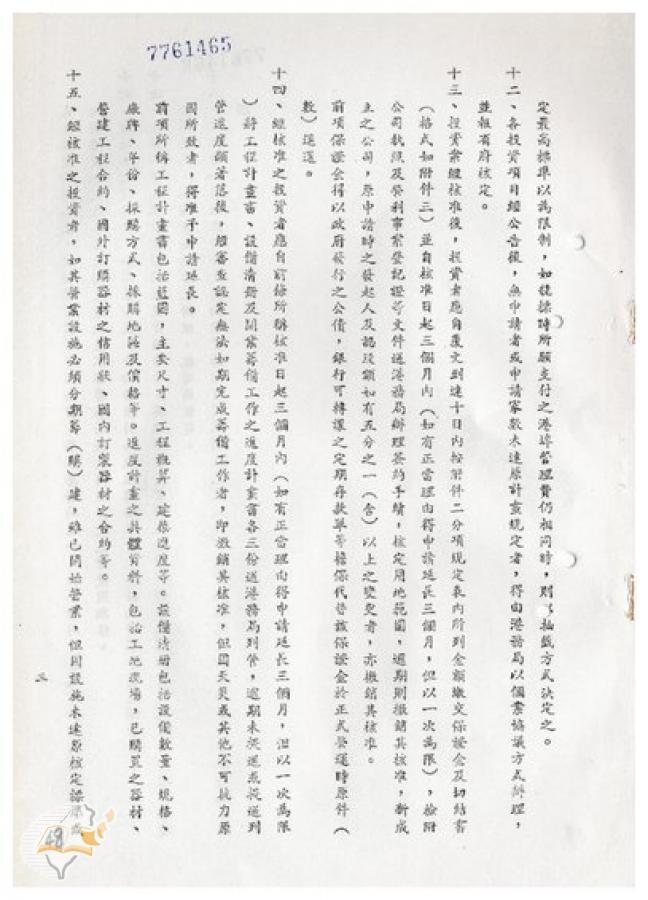 7761465
定最高標準以為限制，如競標時所願支付之港埠管理費仍相同時，則以抽籤方式決定之。
十二、各投資項目經公告後，無申請者或申請家數未達原計畫規定者，得由港務局以個案協議方式辦理，
並報省府核定。
十三、投資案經核准後，投資者應自覆文到達十日內按附件二分項規定表內所列金額繳交保證金及切結書
（格式如附件三）並自核准日起三個月內（如有正當理由得申請延長三個月，但以一次為限），檢附
公司執照及營利事業登記證等文件送港務局辦理簽約手續，核定用地範圍，逾期則撤銷其核准，新成
立之公司，原申請時之發起人及認股額如有五分之一（含）以上之變更者，亦撤銷其核准。
前項保證金得以政府發行之公債，銀行可轉讓之定期存款單等擔保代替該保證金於正式營運時原件（
數）退還。
十四、經核准之投資者應自前條所稱核准日起三個月內（如有正當理由得申請延長三個月，但以一次為限
）將工程計畫書、設備清冊及開業籌備工作之進度計畫書各三份送港務局列管，逾期未提送或提送到
管進度顯著落後，經審查認定無法如期完成籌備工作者，即撤銷其核准，但因天災或其他不可抗力原
因所致者，得准予申請延長。
前項所稱工程計畫書包括藍圖，主要尺寸、工程概算、建築進度等。設備清冊包括設備數量、規格、
廠牌、年份、採購方式、採購地區及價格等。進度計畫之具體資料，包括工地現場，已購置之器材、
營建工程合約、國外訂購器材之信用狀、國內訂製器材之合約等。
十五、經核准之投資者，如其營業設施必須分期籌（購）建，雖已開始營業，但因設施未達原核定標準或
三
48